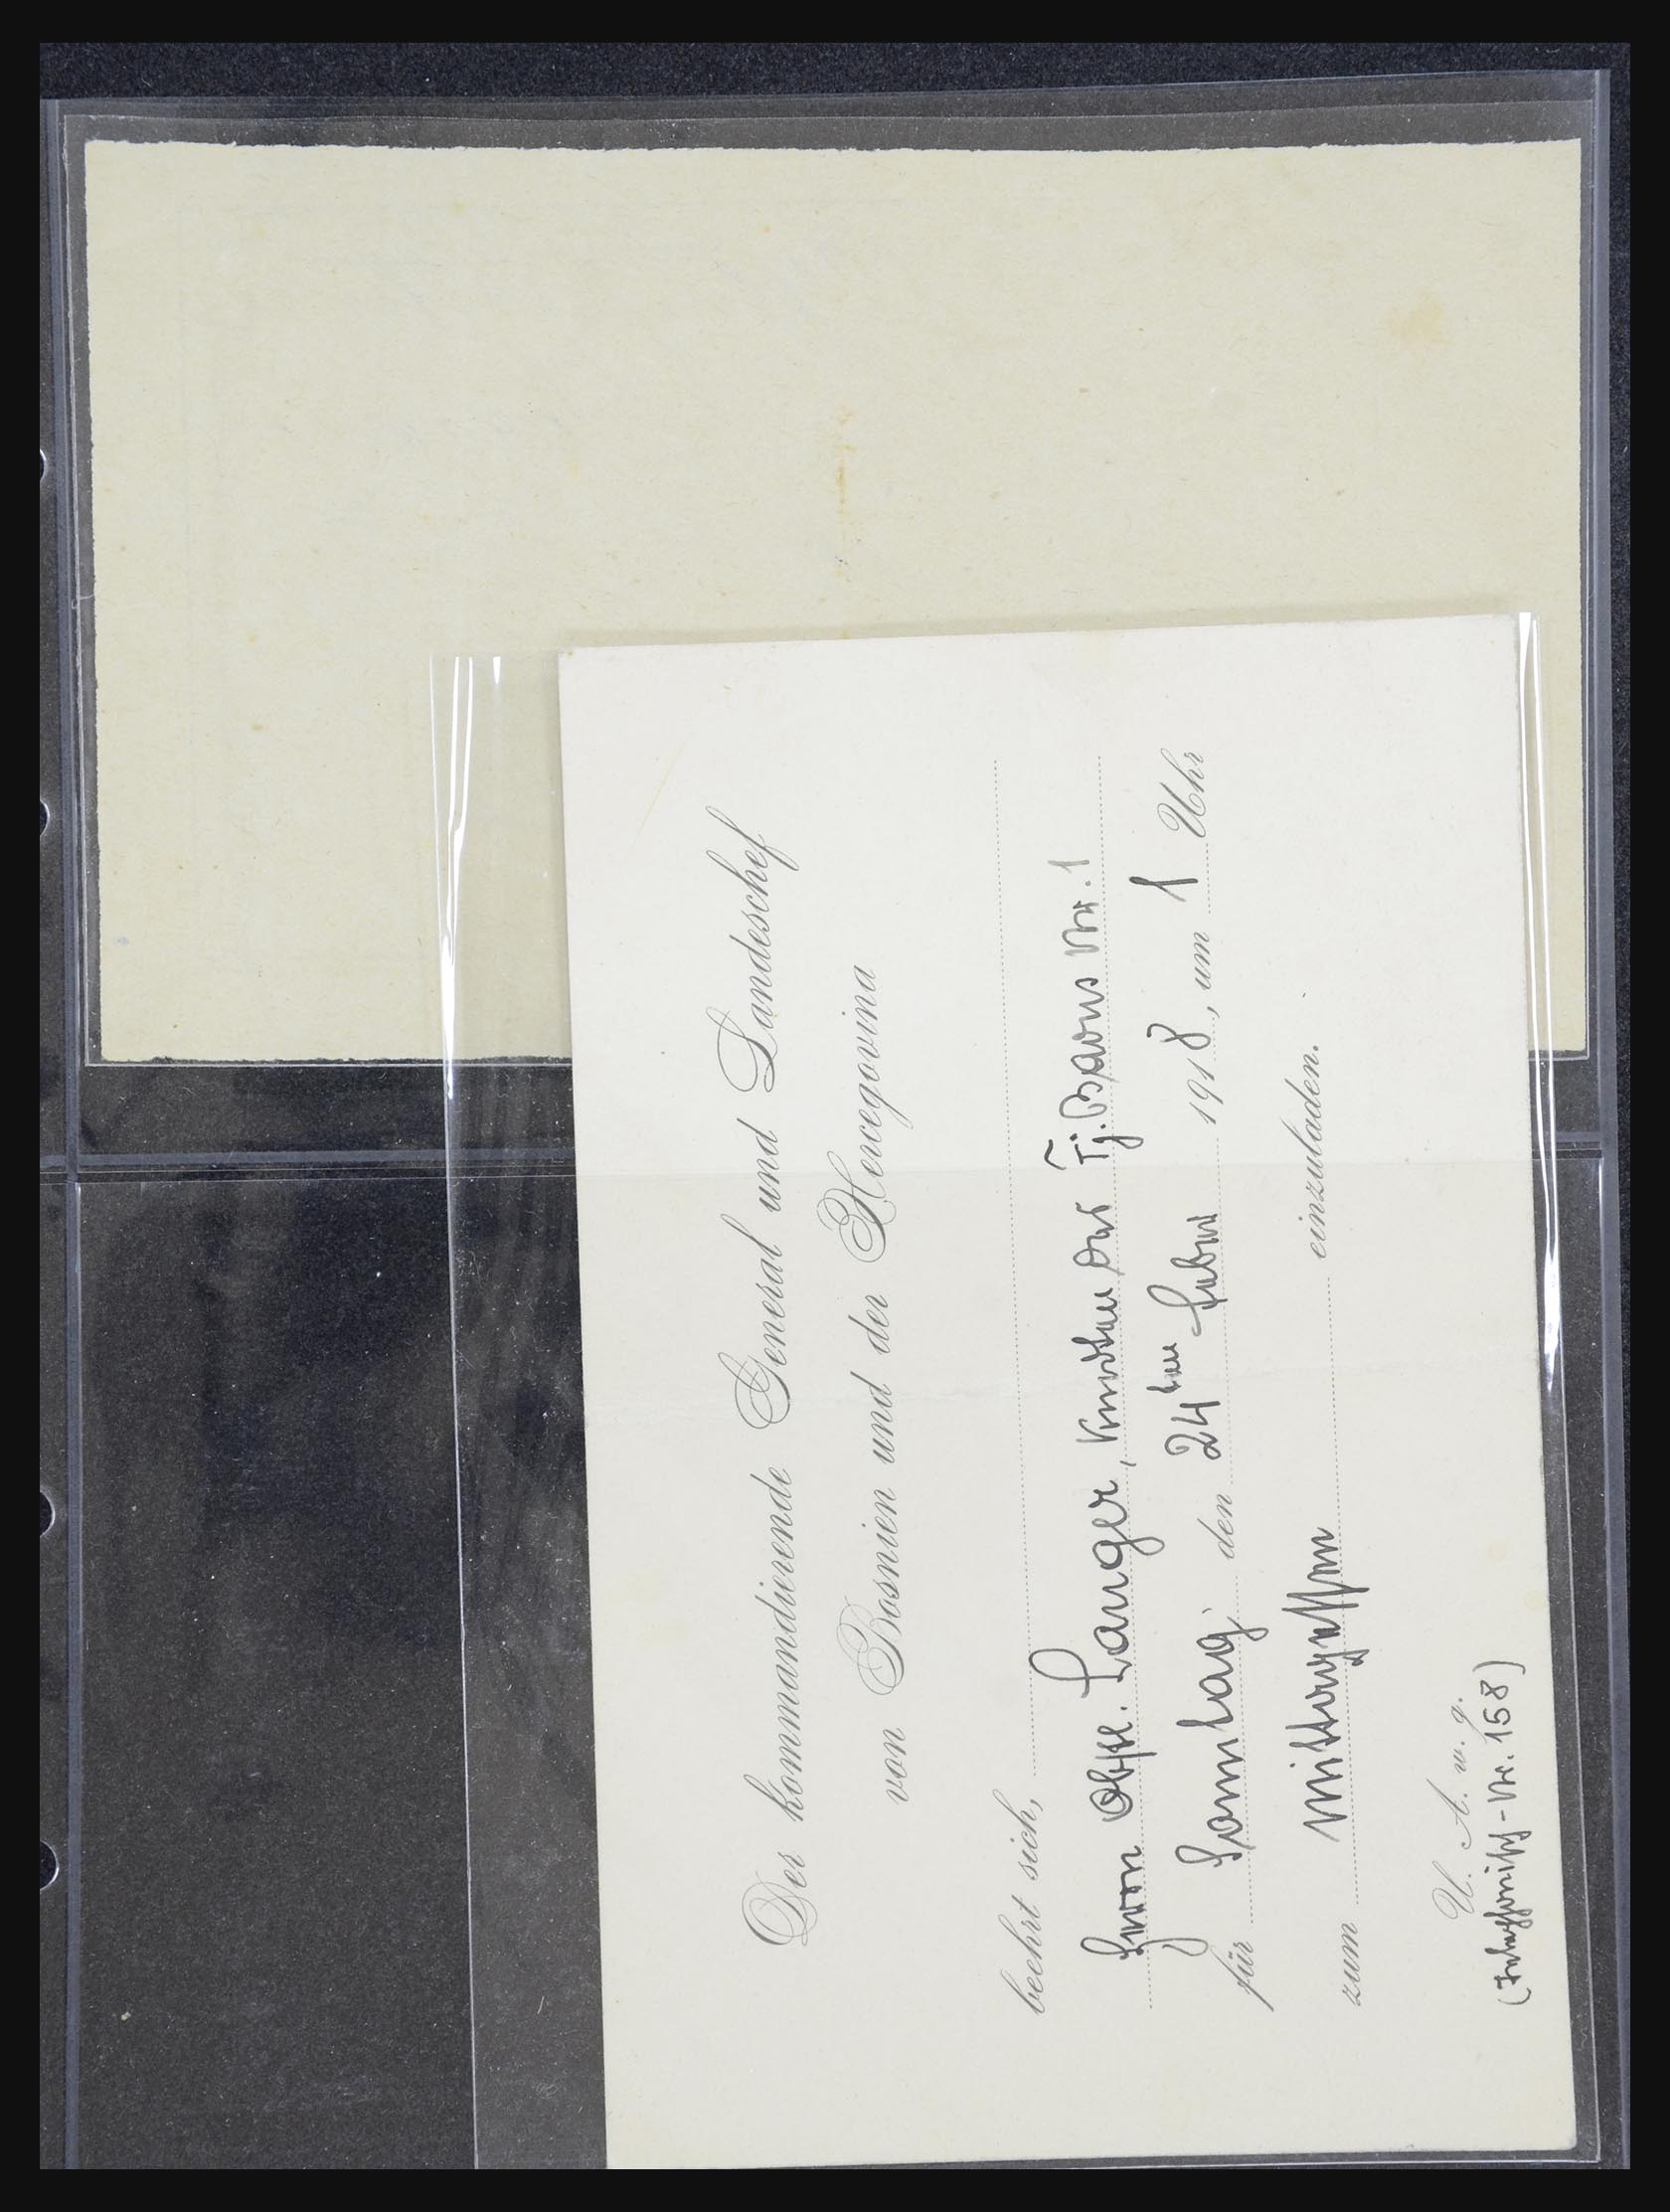 Der kommandierende General und Landeschef
von Bosnien und der Hercegovina
beehrt sich,
Herrn Obstl. Langer, Kmdten des Fj. Baons Nr. 1
für Sonntag den 24ten Febr. 1918, um 1 Uhr
zum Mittagessen einzuladen.
U. A. w. g.
(Telephonisch - Nr. 158)